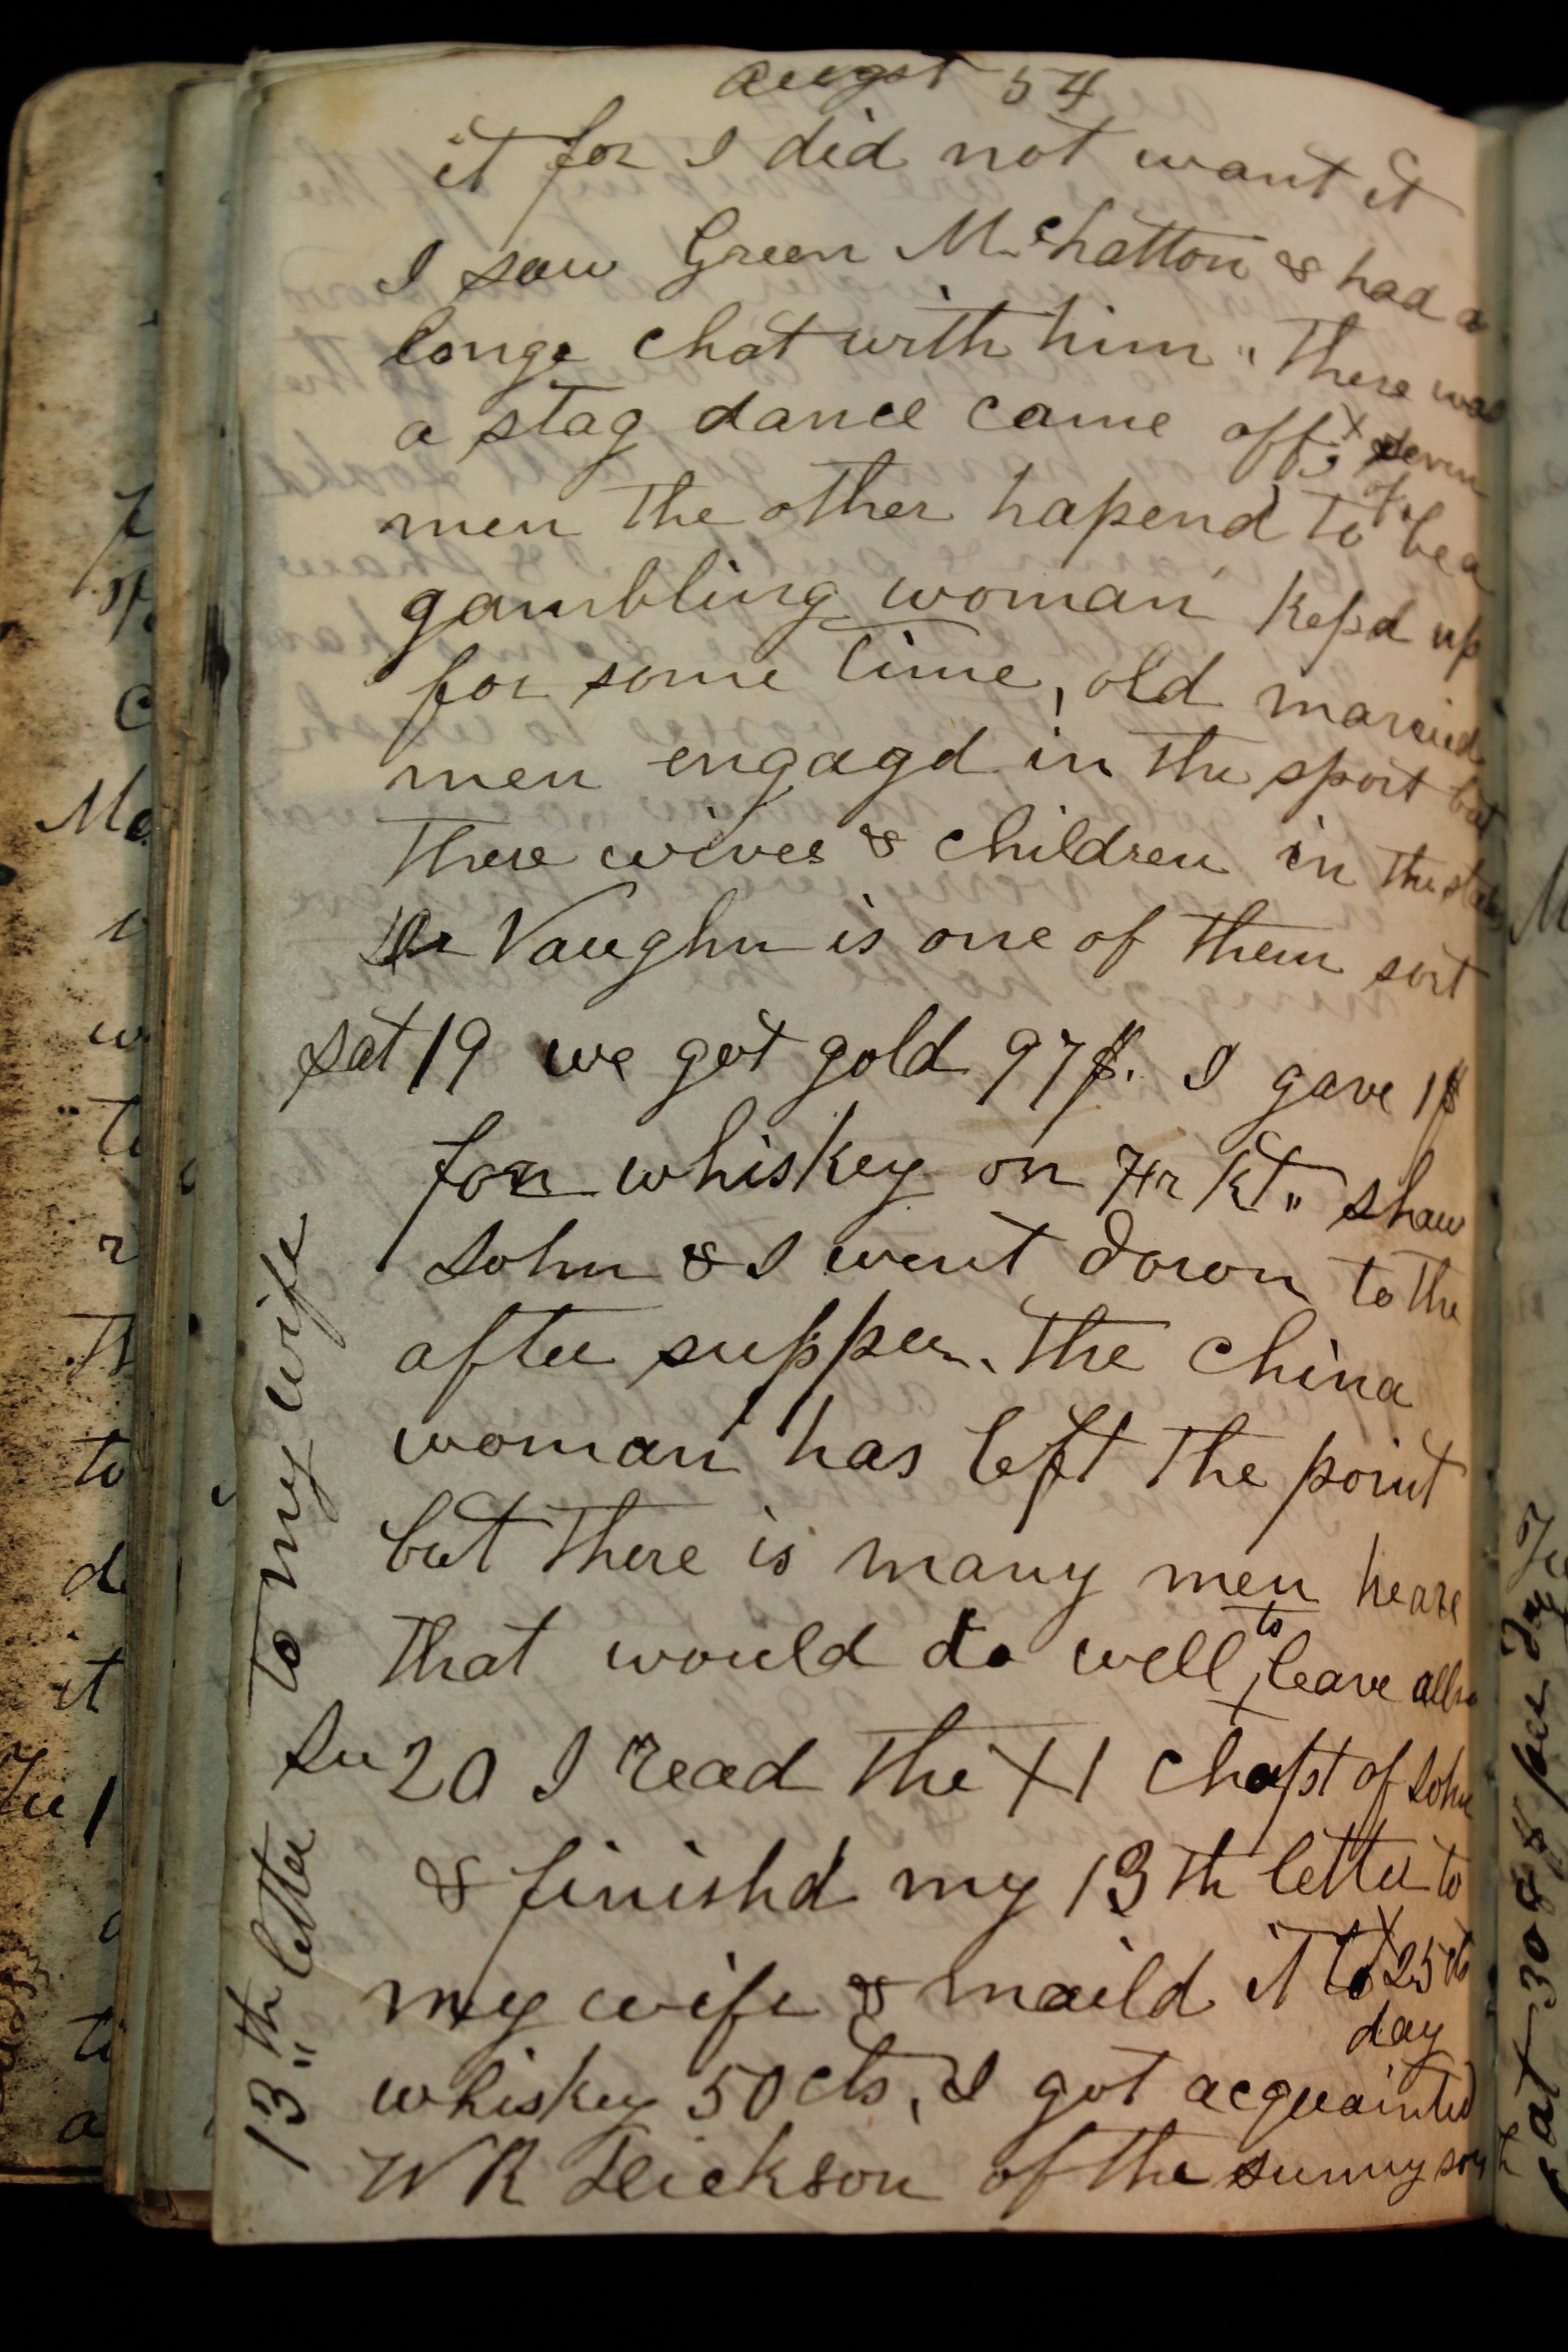 Augst 54
it for I did not want it
I saw Green Mchatton & had a
longe chat with him " There was
a stag dance came off, seven
of
men the other hapend to be a
gambling woman kepd up
for some time, old married
men engagd in the sport but
there wives & children in the states
Dr Vaughn is one of them sort
Sat 19 we got gold 97$. I gave 1$
for whiskey on " shaw
John & I went down to the
after supper. The China
woman has left the point
but there is many men heare
to
that would do well leave allso
Su 20 I read the XI chapt of John
& finishd my 13th letter to
my wife & maild it to 25 cts
day
whiskey 50 cts, I got acquainted
W R Dickson of the sunny south
13"th letter to my wife
Sat 30